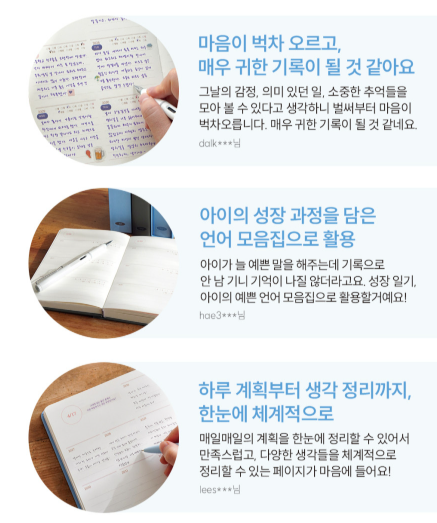 마음이 벅차 오르고,
매우 귀한 기록이 될 것 같아요
그날의 감정, 의미 있던 일, 소중한 추억들을
모아 볼 수 있다고 생각하니 벌써부터 마음이
벅차오릅니다. 매우 귀한 기록이 될 것 같네요.
dalk***님
아이의 성장 과정을 담은
언어 모음집으로 활용
아이가 늘 예쁜 말을 해주는데 기록으로
안 남 기니 기억이 나질 않더라고요. 성장 일기,
아이의 예쁜 언어 모음집으로 활용할거예요!
hae3***님
하루 계획부터 생각 정리까지,
한눈에 체계적으로
매일매일의 계획을 한눈에 정리할 수 있어서
만족스럽고, 다양한 생각들을 체계적으로
정리할 수 있는 페이지가 마음에 들어요!
lees***님